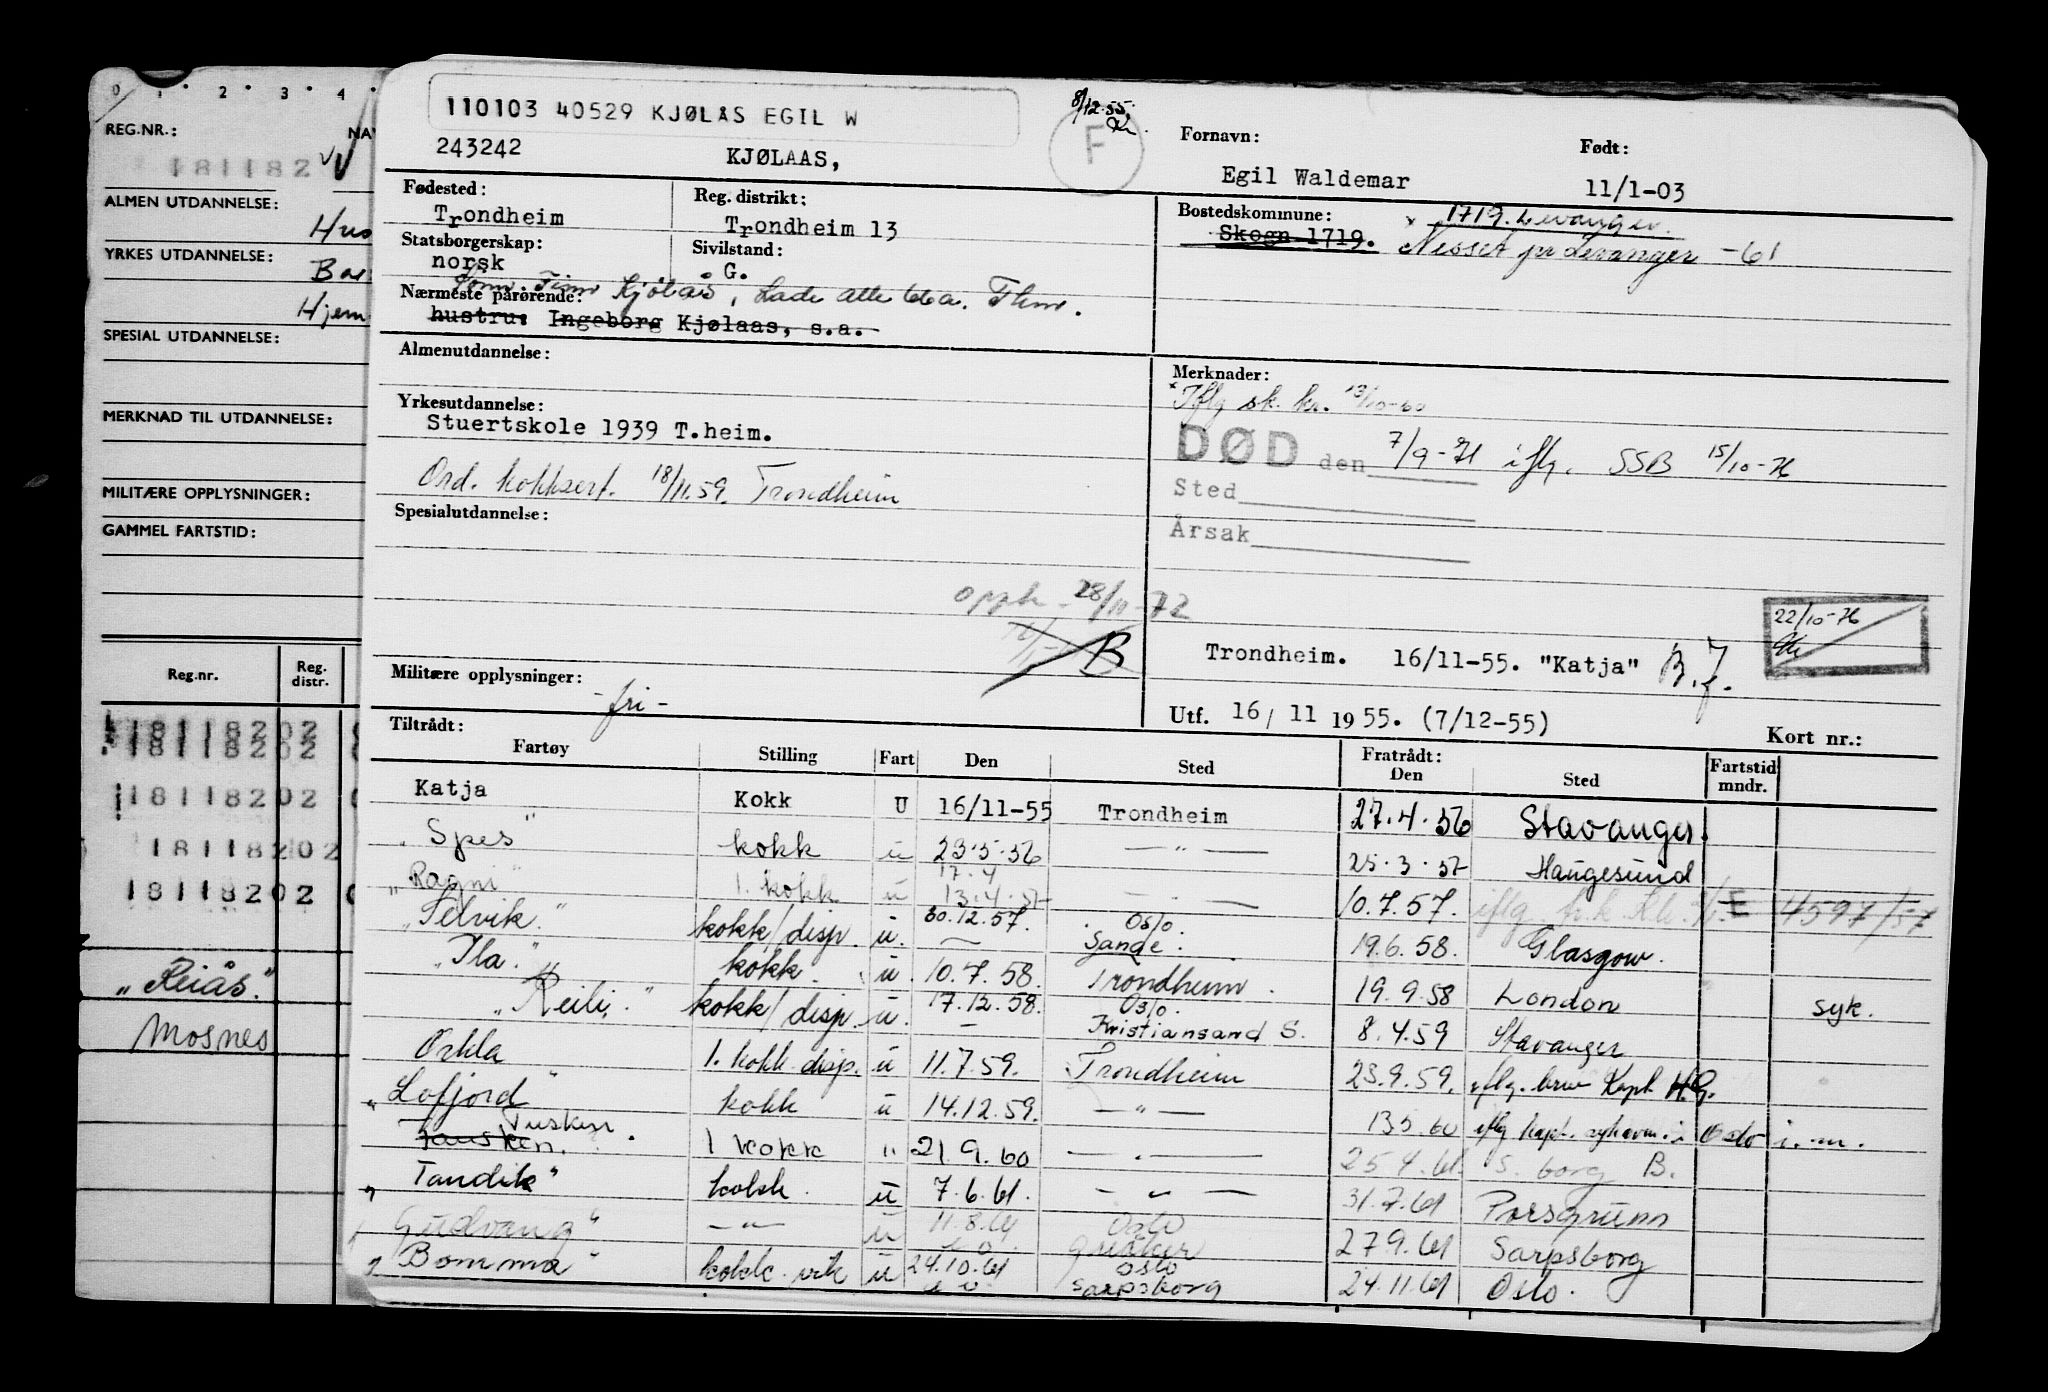 0 1 2 3 4
REG.NR.: NAV
181182
ALMEN UTDANNELSE:
YRKES UTDANNELSE:
Hjem
SPESIAL UTDANNELSE:
MERKNAD TIL UTDANNELSE:
MILITÆRE OPPLYSNINGER:
GAMMEL FARTSTID:
Reg.nr. Reg. distr.
18118202
18118202
18118202
18118202
18118202
"Reiås."
Mosnes
110103 40529 KJØLÅS EGIL W
8/12.55.
F
243242 KJØLAAS,
Fornavn: Født:
Egil Waldemar 11/1-03
Fødested: Reg. distrikt: Bostedskommune: x 1719. Levanger.
Trondheim Trondheim 13 Skogn 1719. Nesset pr Levanger -61
Statsborgerskap: Sivilstand:
norsk G.
Sønn: Finn Kjølås, Lade alle 66a. Thm.
Nærmeste pårørende:
hustru: Ingeborg Kjølaas, s.a.
Almenutdannelse:
Merknader:
x Iflg sk. kr. 13/10-60
Yrkesutdannelse:
Stuertskole 1939 T.heim.
DØD den 7/9-71 iflg. SSB 15/10-76
Ord. kokksert. 18/11.59. Trondheim
Sted
Spesialutdannelse:
Årsak
opph. 28/11-72
B
22/10-76
Trondheim. 16/11-55. "Katja" B.f.
Militære opplysninger:
-fri-
Utf. 16/11 1955. (7/12-55)
Kort nr.:
Tiltrådt: Fratrådt:
Fartøy Stilling Fart Den Sted Den Sted Fartstid mndr.
Katja Kokk U 16/11-55 Trondheim 27.4.56 Stavanger.
"Spes" kokk u 23.5.56 — " — 25.3.57 Haugesund
17.4
"Ragni" 1. kokk u 13.4.57 — " — 10.7.57. iflg. E 4597/57
"Selvik." kokk/disp. u. 30.12.57. Oslo. Sande. 19.6.58. Glasgow.
"Ila." kokk. u. 10.7.58. Trondheim. 19.9.58 London syk.
"Reili." kokk/disp. u. 17.12.58. Oslo. Kristiansand S. 8.4.59 Stavanger
Orkla 1. kokk disp. u 11.7.59. Trondheim 23.9.59. iflg. brev Kapt. H.G.
"Lofjord" kokk u 14.12.59. — " — 13.5.60 iflg kapt. i Oslo i.-m.
Tusken.
1 kokk " 21.9.60 — " — 25.4.61. S. borg B.
"Tandik" kokk. u 7.6.61. — " — 31.7.61 Porsgrunn
"Gudvang" — " — u 11.8.61 Oslo Greåker 27.9.61 Sarpsborg
"Bomma" kokk. vik u 24.10.61 Oslo Sarpsborg 24.11.61 Oslo.